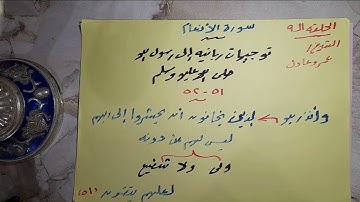 الحلقة الـ ٩
التقويم/
عمرو عادل
سورة الأنعام
توجيهات ربانيه إلى رسول الله
صلى الله عليه وسلم
٥١ - ٥٢
وأنذر به ← الذين يخافون أن يحشروا إلى ربهم
ليس لهم من دونه
ولى ولا شفيع
لعلهم يتقون (٥١)